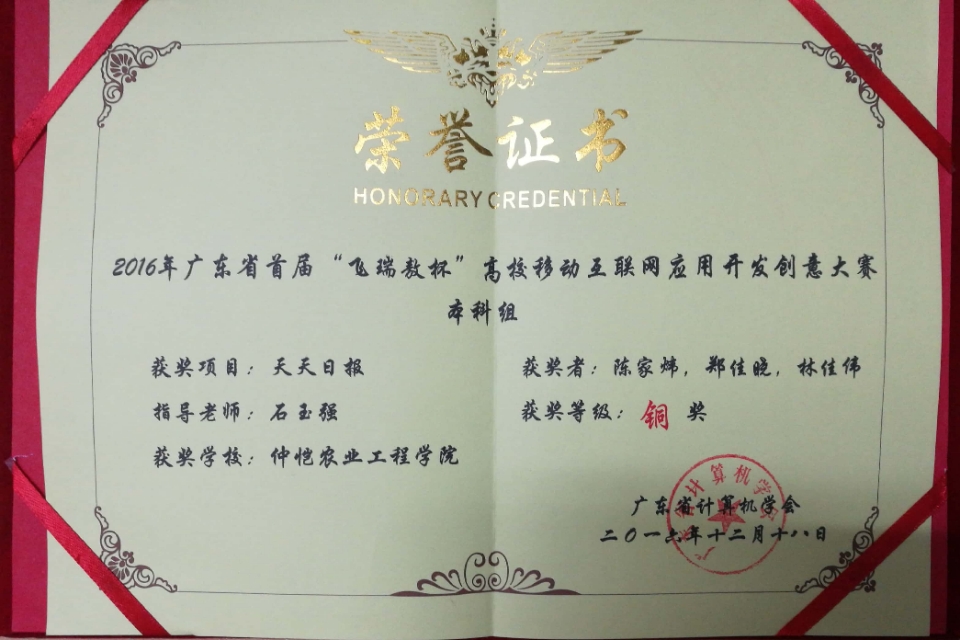 荣誉证书
HONORARY CREDENTIAL
2016年广东省首届“飞瑞敖杯”高校移动互联网应用开发创意大赛
本科组
获奖项目：天天日报
获奖者：陈家炜，郑佳晓，林佳伟
指导老师：石玉强
获奖等级：铜奖
获奖学校：仲恺农业工程学院
广东省计算机学会
二〇一六年十二月十八日